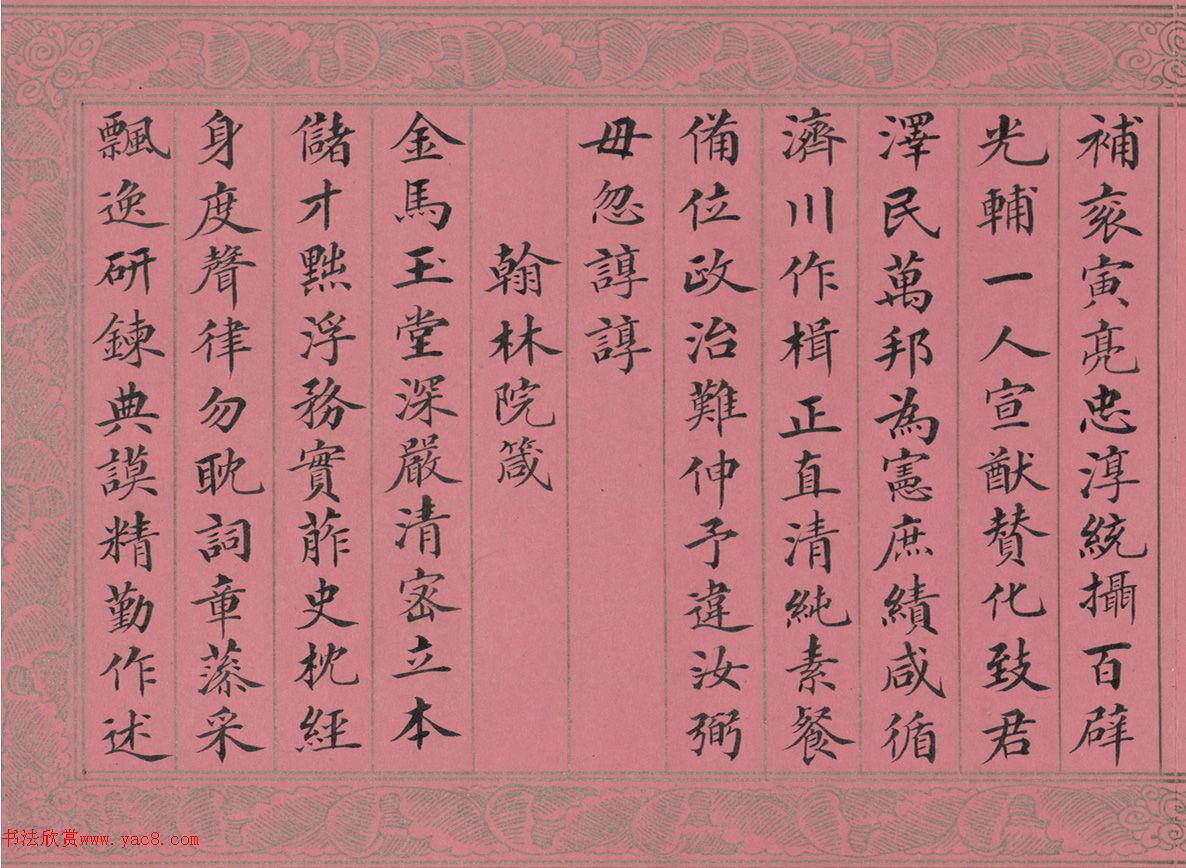 補衮寅亮忠淳統攝百辟
光輔一人宣猷贊化致君
澤民萬邦為憲庶績咸循
濟川作楫正直清純素餐
備位政治難伸予違汝弼
毋忽諄諄
翰林院箴
金馬玉堂深嚴清密立本
儲才黜浮務實葄史枕經
身度聲律勿耽詞章藻采
飄逸研鍊典謨精勤作述
书法欣赏www.yac8.com